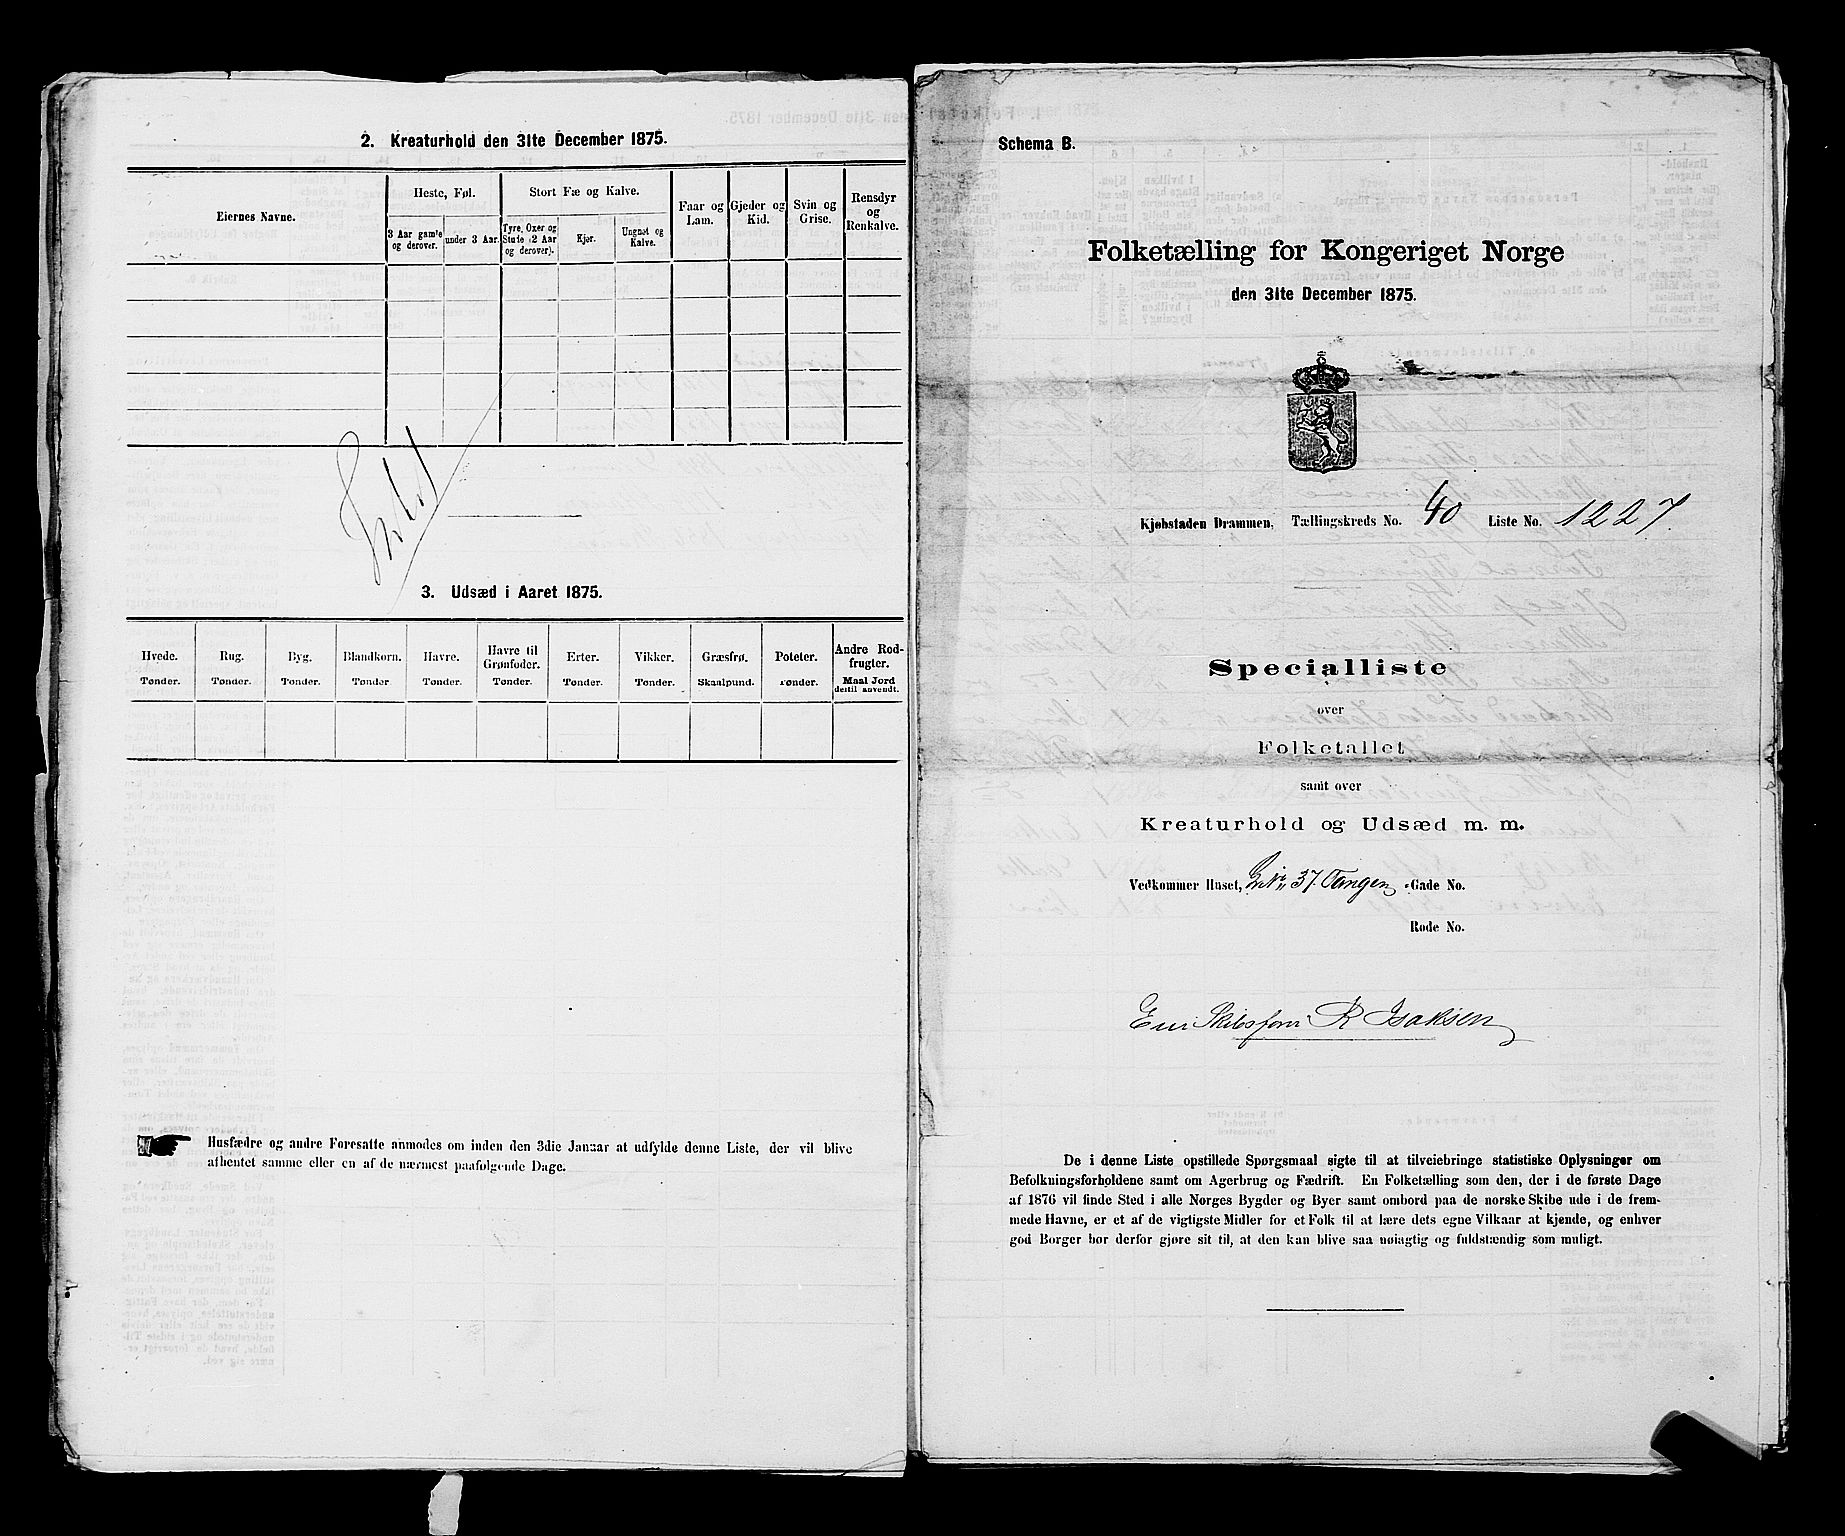 2. Kreaturhold den 31te December 1875.
Eiernes Navne.
Heste, Føl.
3 Aar gamle og derover.
under 3 Aar.
Stort Fæ og Kalve.
Tyre, Oxer og Stude (2 Aar og derover).
Kjør.
Ungnøt og Kalve.
Faar og Lam.
Gjeder og Kid.
Svin og Grise.
Rensdyr og Renkalve.
3. Udsæd i Aaret 1875.
Hvede. Rug. Byg. Blandkorn. Havre. Havre til Grønfoder. Erter. Vikker. Græsfrø. Poteter. Andre Rodfrugter.
Tønder. Tønder. Tønder. Tønder Tønder. Tønder. Tønder. Tønder. Skaalpund. Tønder. Maal Jord dertil anvendt.
Husfædre og andre Foresatte anmodes om inden den 3die Januar at udfylde denne Liste, der vil blive
afhentet samme eller en af de nærmest paafølgende Dage.
Schema B.
Folketælling for Kongeriget Norge
den 31te December 1875.
Kjøbstaden Drammen, Tællingskreds No. 40 Liste No. 1227.
Specialliste
over
Folketallet
samt over
Kreaturhold og Udsæd m. m.
Vedkommer Huset, 37. Tangen Gade No.
Rode No.
Eier R Isaksen
De i denne Liste opstillede Spørgsmaal sigte til at tilveiebringe statistiske Oplysninger om
Befolkningsforholdene samt om Agerbrug og Fædrift. En Folketælling som den, der i de første Dage
af 1876 vil finde Sted i alle Norges Bygder og Byer samt ombord paa de norske Skibe ude i de frem-
mede Havne, er et af de vigtigste Midler for et Folk til at lære dets egne Vilkaar at kjende, og enhver
god Borger bør derfor gjøre sit til, at den kan blive saa nøiagtig og fuldstændig som muligt.